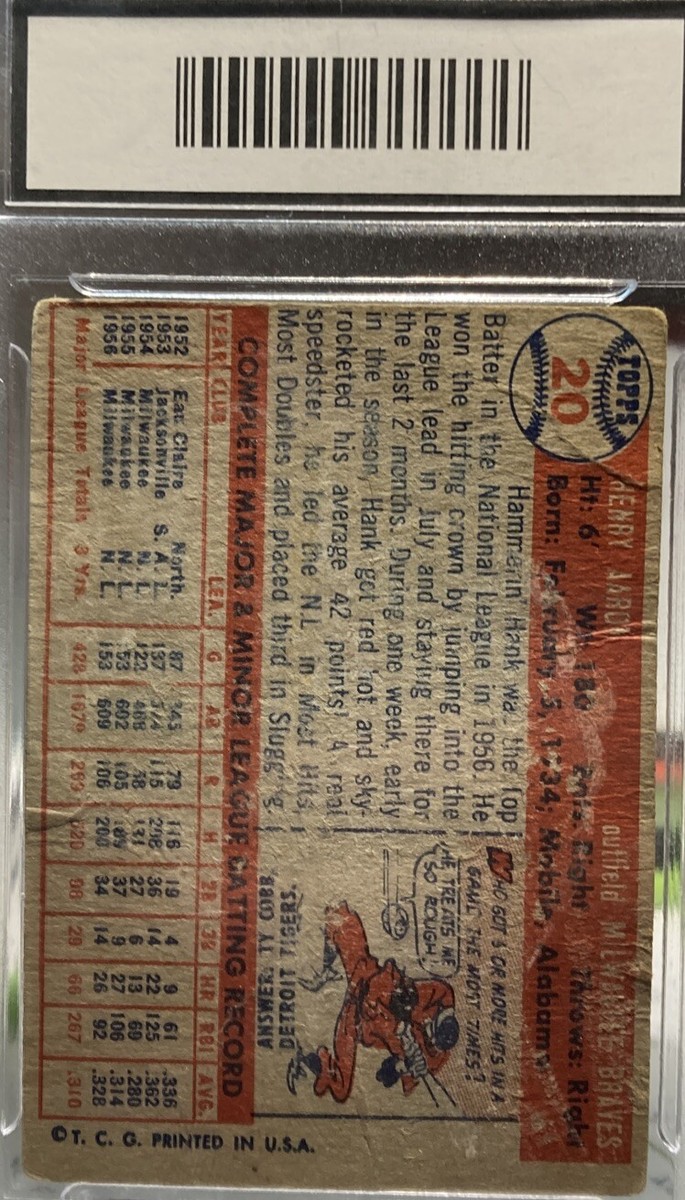 TOPPS
20
HENRY AARON
outfield MILWAUKEE BRAVES
Ht: 6' Wt: 180 Bats: Right Throws: Right
Born: February 5, 1934; Mobile, Alabama
Hammerin' Hank was the Top
Batter in the National League in 1956. He
won the hitting crown by jumping into the
League lead in July and staying there for
the last 2 months. During one week, early
in the season, Hank got red hot and sky-
rocketed his average 42 points! A real
speedster, he led the N.L. in Most Hits,
Most Doubles and placed third in Slugging.
WHO GOT 5 OR MORE HITS IN A
GAME THE MOST TIMES?
HE TREATS ME
SO ROUGH!
ANSWER: TY COBB,
DETROIT TIGERS.
COMPLETE MAJOR & MINOR LEAGUE BATTING RECORD
YEAR CLUB LEA. G AB R H 2B 3B HR RBI AVG.
1952 Eau Claire North. 87 345 79 116 19 4 9 61 .336
1953 Jacksonville S. A. L. 137 574 115 208 36 14 22 125 .362
1954 Milwaukee N. L. 122 468 58 131 27 6 13 69 .280
1955 Milwaukee N. L. 153 602 105 189 37 9 27 106 .314
1956 Milwaukee N. L. 153 609 106 200 34 14 26 92 .328
Major League Totals 3 Yrs. 428 1679 269 520 98 29 66 267 .310
© T. C. G. PRINTED IN U.S.A.